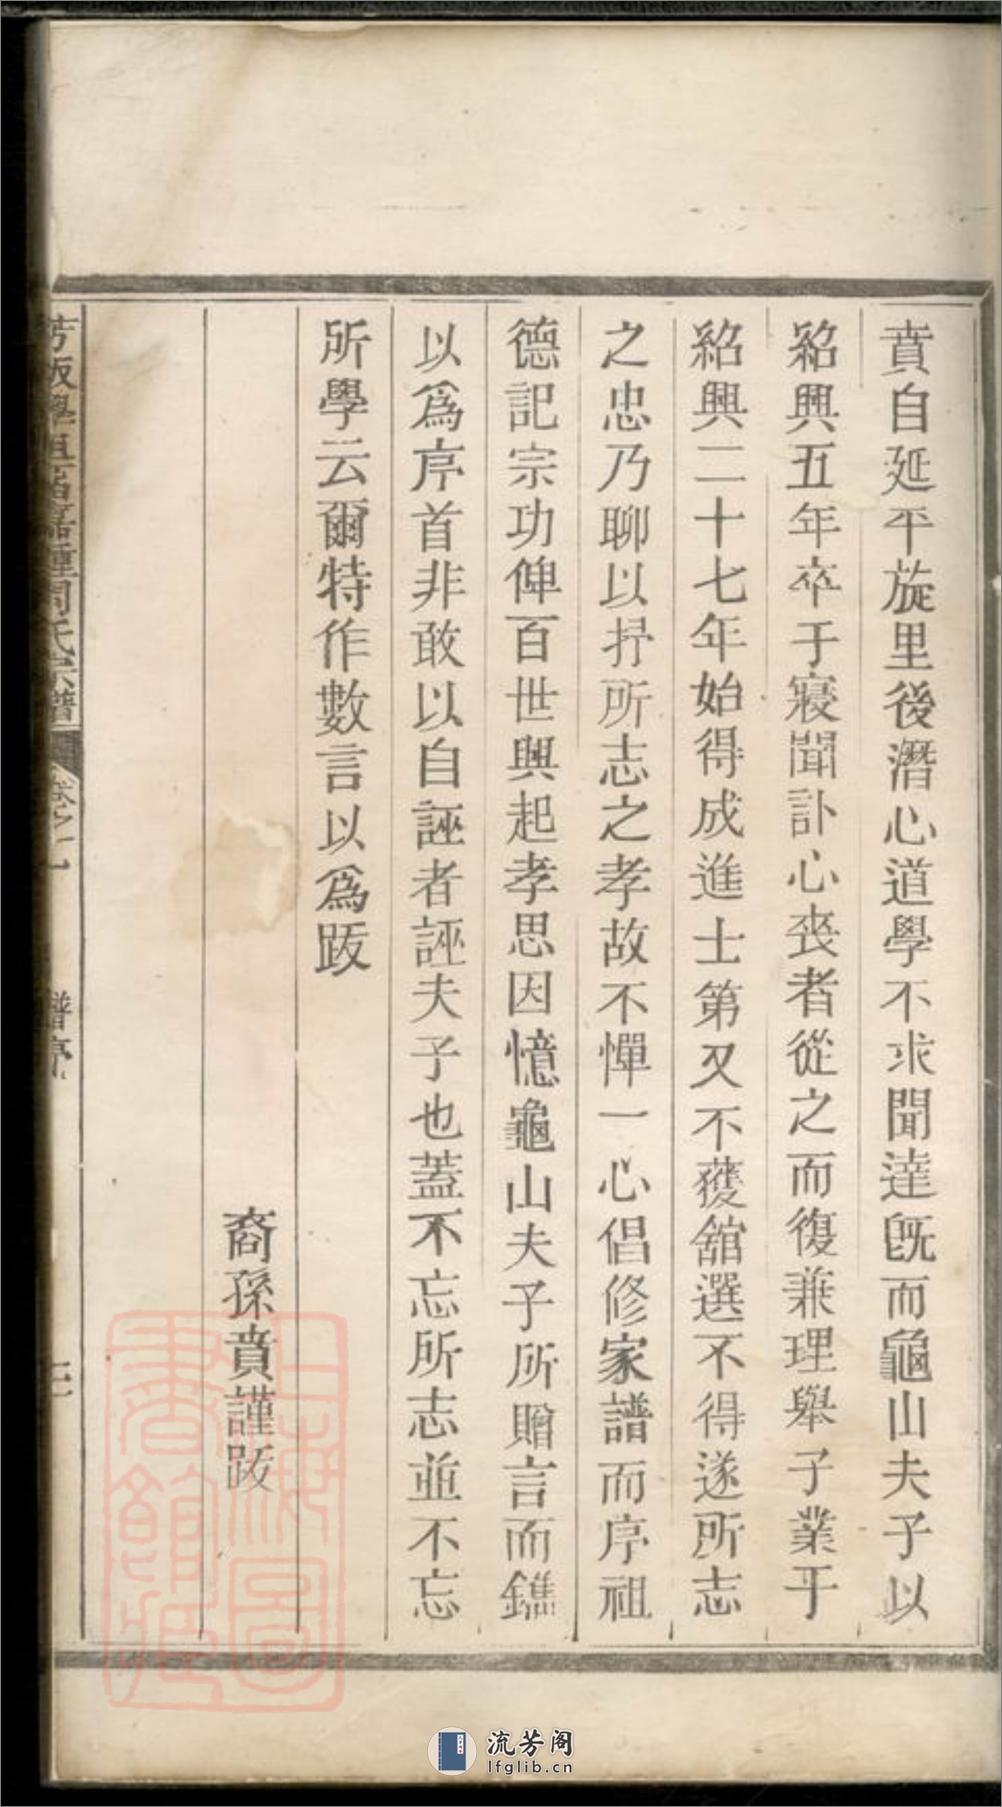 賁自延平旋里後潛心道學不求聞達旣而龜山夫子以
紹興五年卒于寢聞訃心喪者從之而復兼理舉子業于
紹興二十七年始得成進士第又不獲舘選不得遂所志
之忠乃聊以抒所志之孝故不憚一心倡修家譜而序祖
德記宗功俾百世興起孝思因憶龜山夫子所贈言而鐫
以爲序首非敢以自誣者誣夫子也蓋不忘所志並不忘
所學云爾特作數言以爲跋
裔孫賁謹跋
周氏宗譜
卷之一
譜序
三
上海圖書館藏
流芳阁
lfglib.cn